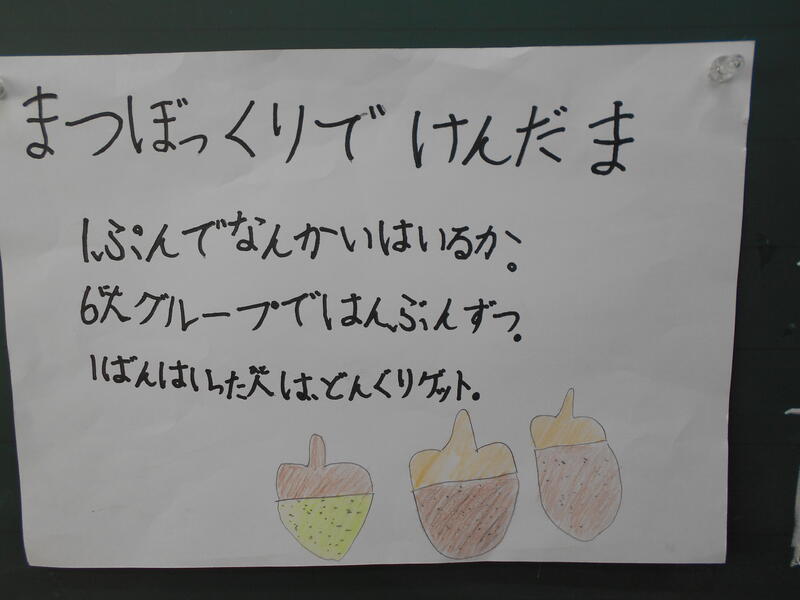 まつぼっくりでけんだま
1ぷんでなんかいはいるか。
6火グループではんぶんずつ。
1ばんはいった人は、どんぐりゲット。